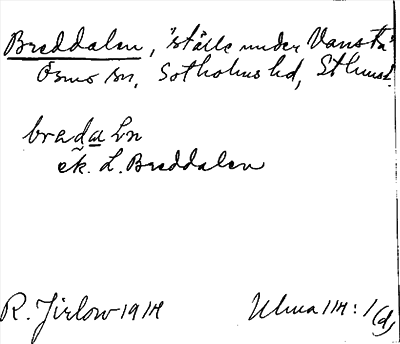 Breddalen, "ställe under Vansta"
Ösmo sn, Sotholms hd, Sthms l.
bradaLn
ek. L. Breddalen
R. Jirlow 1914
Ulma 114:1 (d)